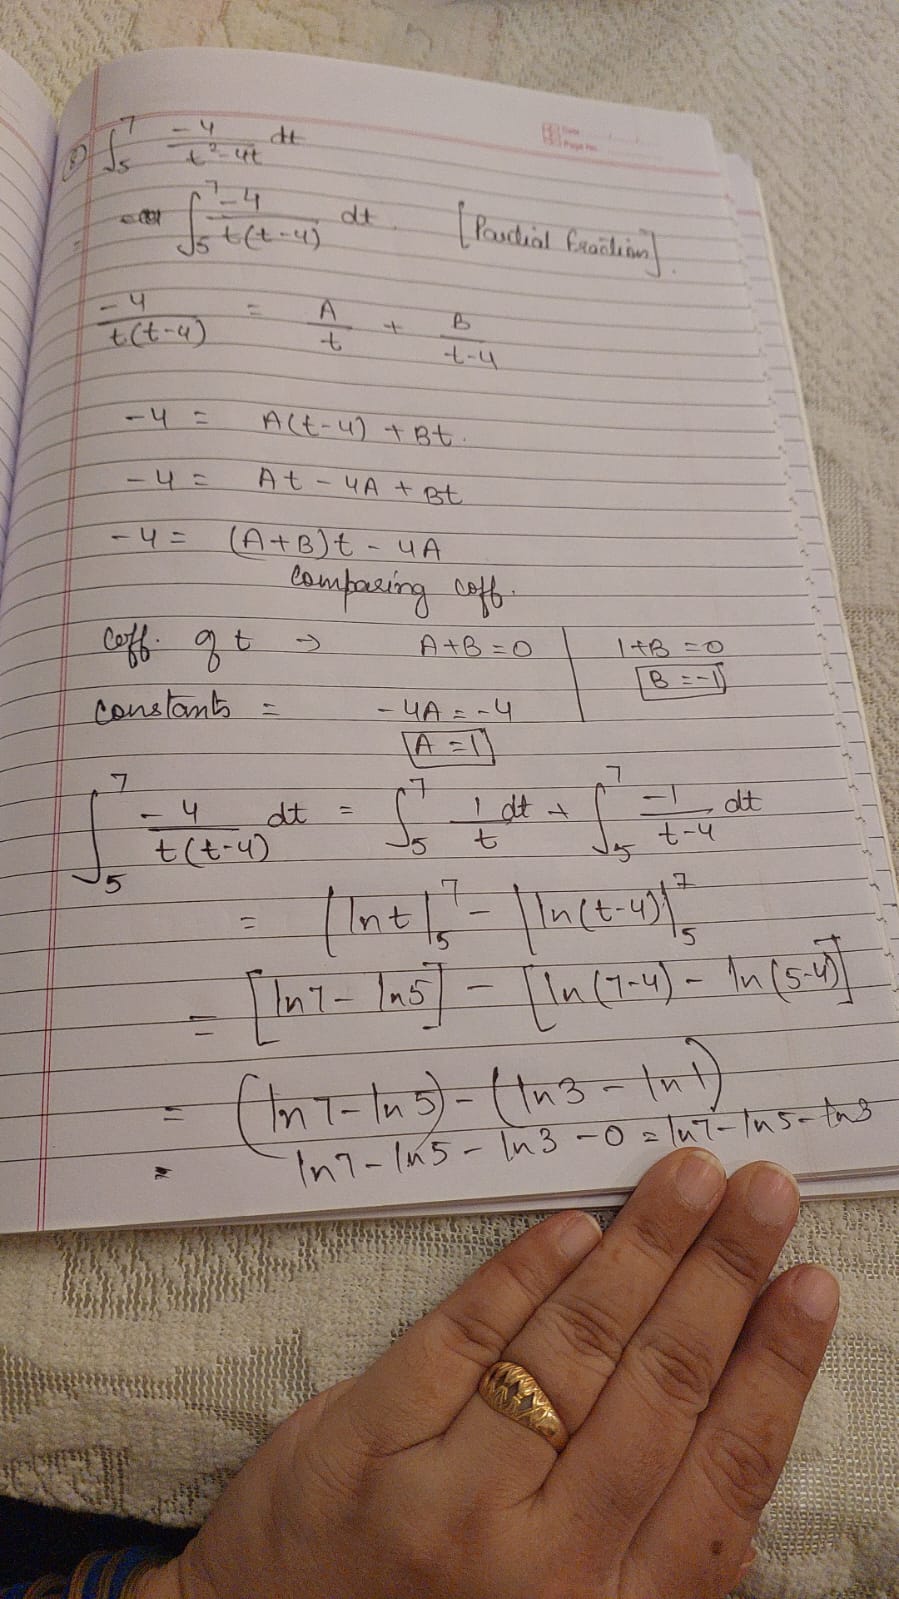 8) ∫₅⁷ -4/(t²-4t) dt
= ∫₅⁷ -4/(t(t-4)) dt. [Partial fraction].
-4/(t(t-4)) = A/t + B/(t-4)
-4 = A(t-4) + Bt.
-4 = At - 4A + Bt
-4 = (A+B)t - 4A
Comparing coff.
Coff. of t → A+B=0 | 1+B=0
B=-1
constants = -4A=-4
A=1
∫₅⁷ -4/(t(t-4)) dt = ∫₅⁷ 1/t dt + ∫₅⁷ -1/(t-4) dt
= |ln t|₅⁷ - |ln(t-4)|₅⁷
= [ln7 - ln5] - [ln(7-4) - ln(5-4)]
= (ln7 - ln5) - (ln3 - ln1)
= ln7 - ln5 - ln3 - 0 = ln7 - ln5 - ln3